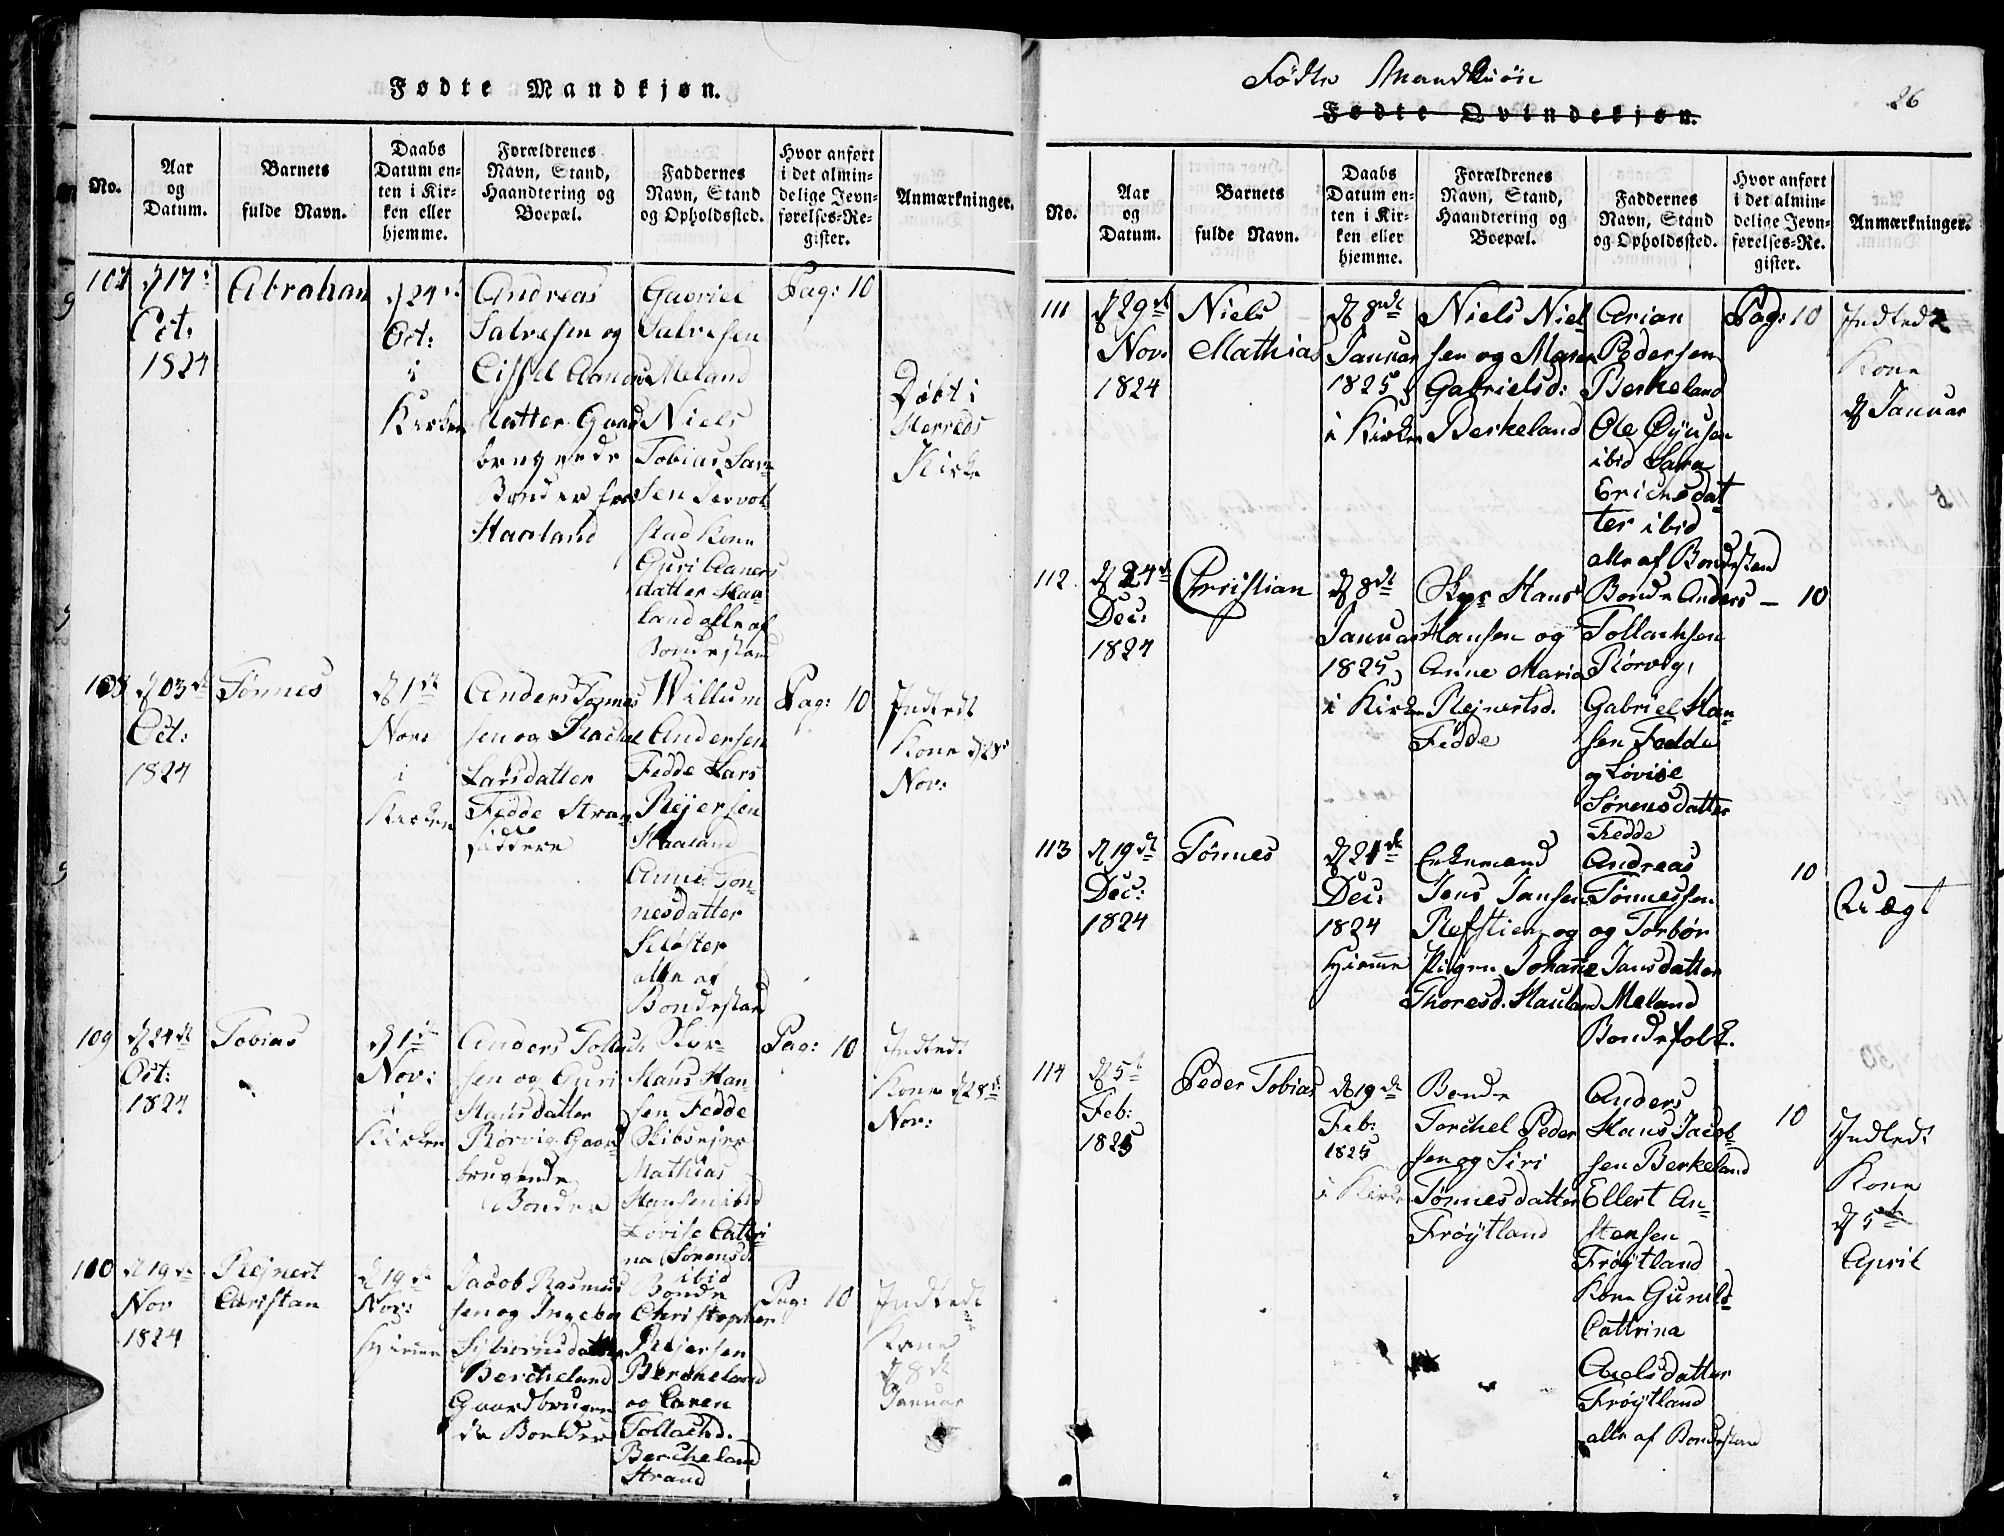 Fødte Mandkjøn.
No.
Aar
og
Datum.
Barnets
fulde Navn.
Daabs
Datum en-
ten i Kir-
ken eller
hjemme.
Forældrenes
Navn, Stand,
Haandtering og
Boepæl.
Faddernes
Navn, Stand
og Opholdssted.
Hvor anført
i det almin-
delige Jevn-
førelses-Re-
gister.
Anmærkninger.
107
d 17de
Oct:
1824
Abraham
d 24de
Oct:
i
Kirken
Andreas
Salvesen og
datter Gaard
brugende
Bønder fra
Haaland
Gabriel
Salvesen
Meland
Niels
Tobias
stad Kone
Guri Aaners
datter Haa-
land alle af
Bondestand
Pag: 10
Døbt i
Herreds
Kirke
108
d 03de
Oct:
1824
Tønnes
d 1ste
Nov:
i
Kirken
Anders Tønnes
sen og Rachel
Larsdatter
Fedde Stran
siddere
Willum
Andersen
Fedde Lars
Rejersen
Haaland
Anne Ton-
nesdatter
Kløster
alle af
Bondestand
Pag: 10
Indledt
Kone d 28de
Nov:
109
d 24de
Oct:
1824
Tobias
d 1ste
Nov:
i
Kirken
Anders Tollach
sen og Guri
Hansdatter
Rørvig Gaard
brugende
Bønder
Hans Han-
sen Fedde
Skibsejer
Mathias
Hansen ibid
Lovise Cathri
na Sørensd.
ibid
Pag: 10
Indledt
Kone d 28de
Nov:
100
d 19de
Nov
1824
Rejnert
Christan
d 19de
Nov:
Hjemme
Jacob Rasmus
sen og Ingebo
Bercheland
Gaardbrugen
de Bønder
Bonde
Christopher
Rejersen
Bercheland
og Caren
Tollachd.
Bercheland
Strand
Pag: 10
Indledt
Kone
d 8de
Januar
Fødte Mandkiøn
Fødte Qvindekjøn.
26
No.
Aar
og
Datum.
Barnets
fulde Navn.
Daabs
Datum en-
ten i Kir-
ken eller
hjemme.
Forældrenes
Navn, Stand,
Haandtering og
Boepæl.
Faddernes
Navn, Stand
og Opholdssted.
Hvor anført
i det almin-
delige Jevn-
førelses-Re-
gister.
Anmærkninger.
111
d 29de
Nov:
1824
Niels
Mathias
d 8de
Januar
1825
i Kirken
Niels Niel
sen og Maren
Gabrielsd:
Berkeland
Arian
Pedersen
Berkeland
Ole
ibid Sara
Erichsdat
ter ibid
alle af Bondestand
Pag: 10
Indledt
Kone
d Januar
112
d 24de
Dec:
1824
Christian
d 8de
Januar
1825
i Kirken
Hans
Hansen og
Anne Maria
Rejnertsd.
Fedde
Bonde Anders
Tollachsen
Rørvig,
Gabriel Han-
sen Fedde
og Lovise
Sørensdatter
Fedde
— 10
113
d 19de
Dec:
1824
Tønnes
d 21de
Dec:
1824
Hjemme
Enkemand
Jens Jansen
Refstien og
Pigen Johanne
Thoresd. Hauland
Andreas
Tønnessen
og Torbør
Jansdatter
Meland
Bondefolk.
10
Uægt
114
d 5te
Feb:
1825
Peder Tobias
d 19de
Feb:
1825
i Kirke
Bonde
Torchel Peder
sen og Siri
Tønnesdatter
Frøytland
Anders
Hans Jacob-
sen Berkeland
Ellert An-
stensen
Frøytland
Kone Gunild
Cattrina
Axelsdatter
Frøytland
alle af Bondestand
10
Indledt
Kone
d 5te
April